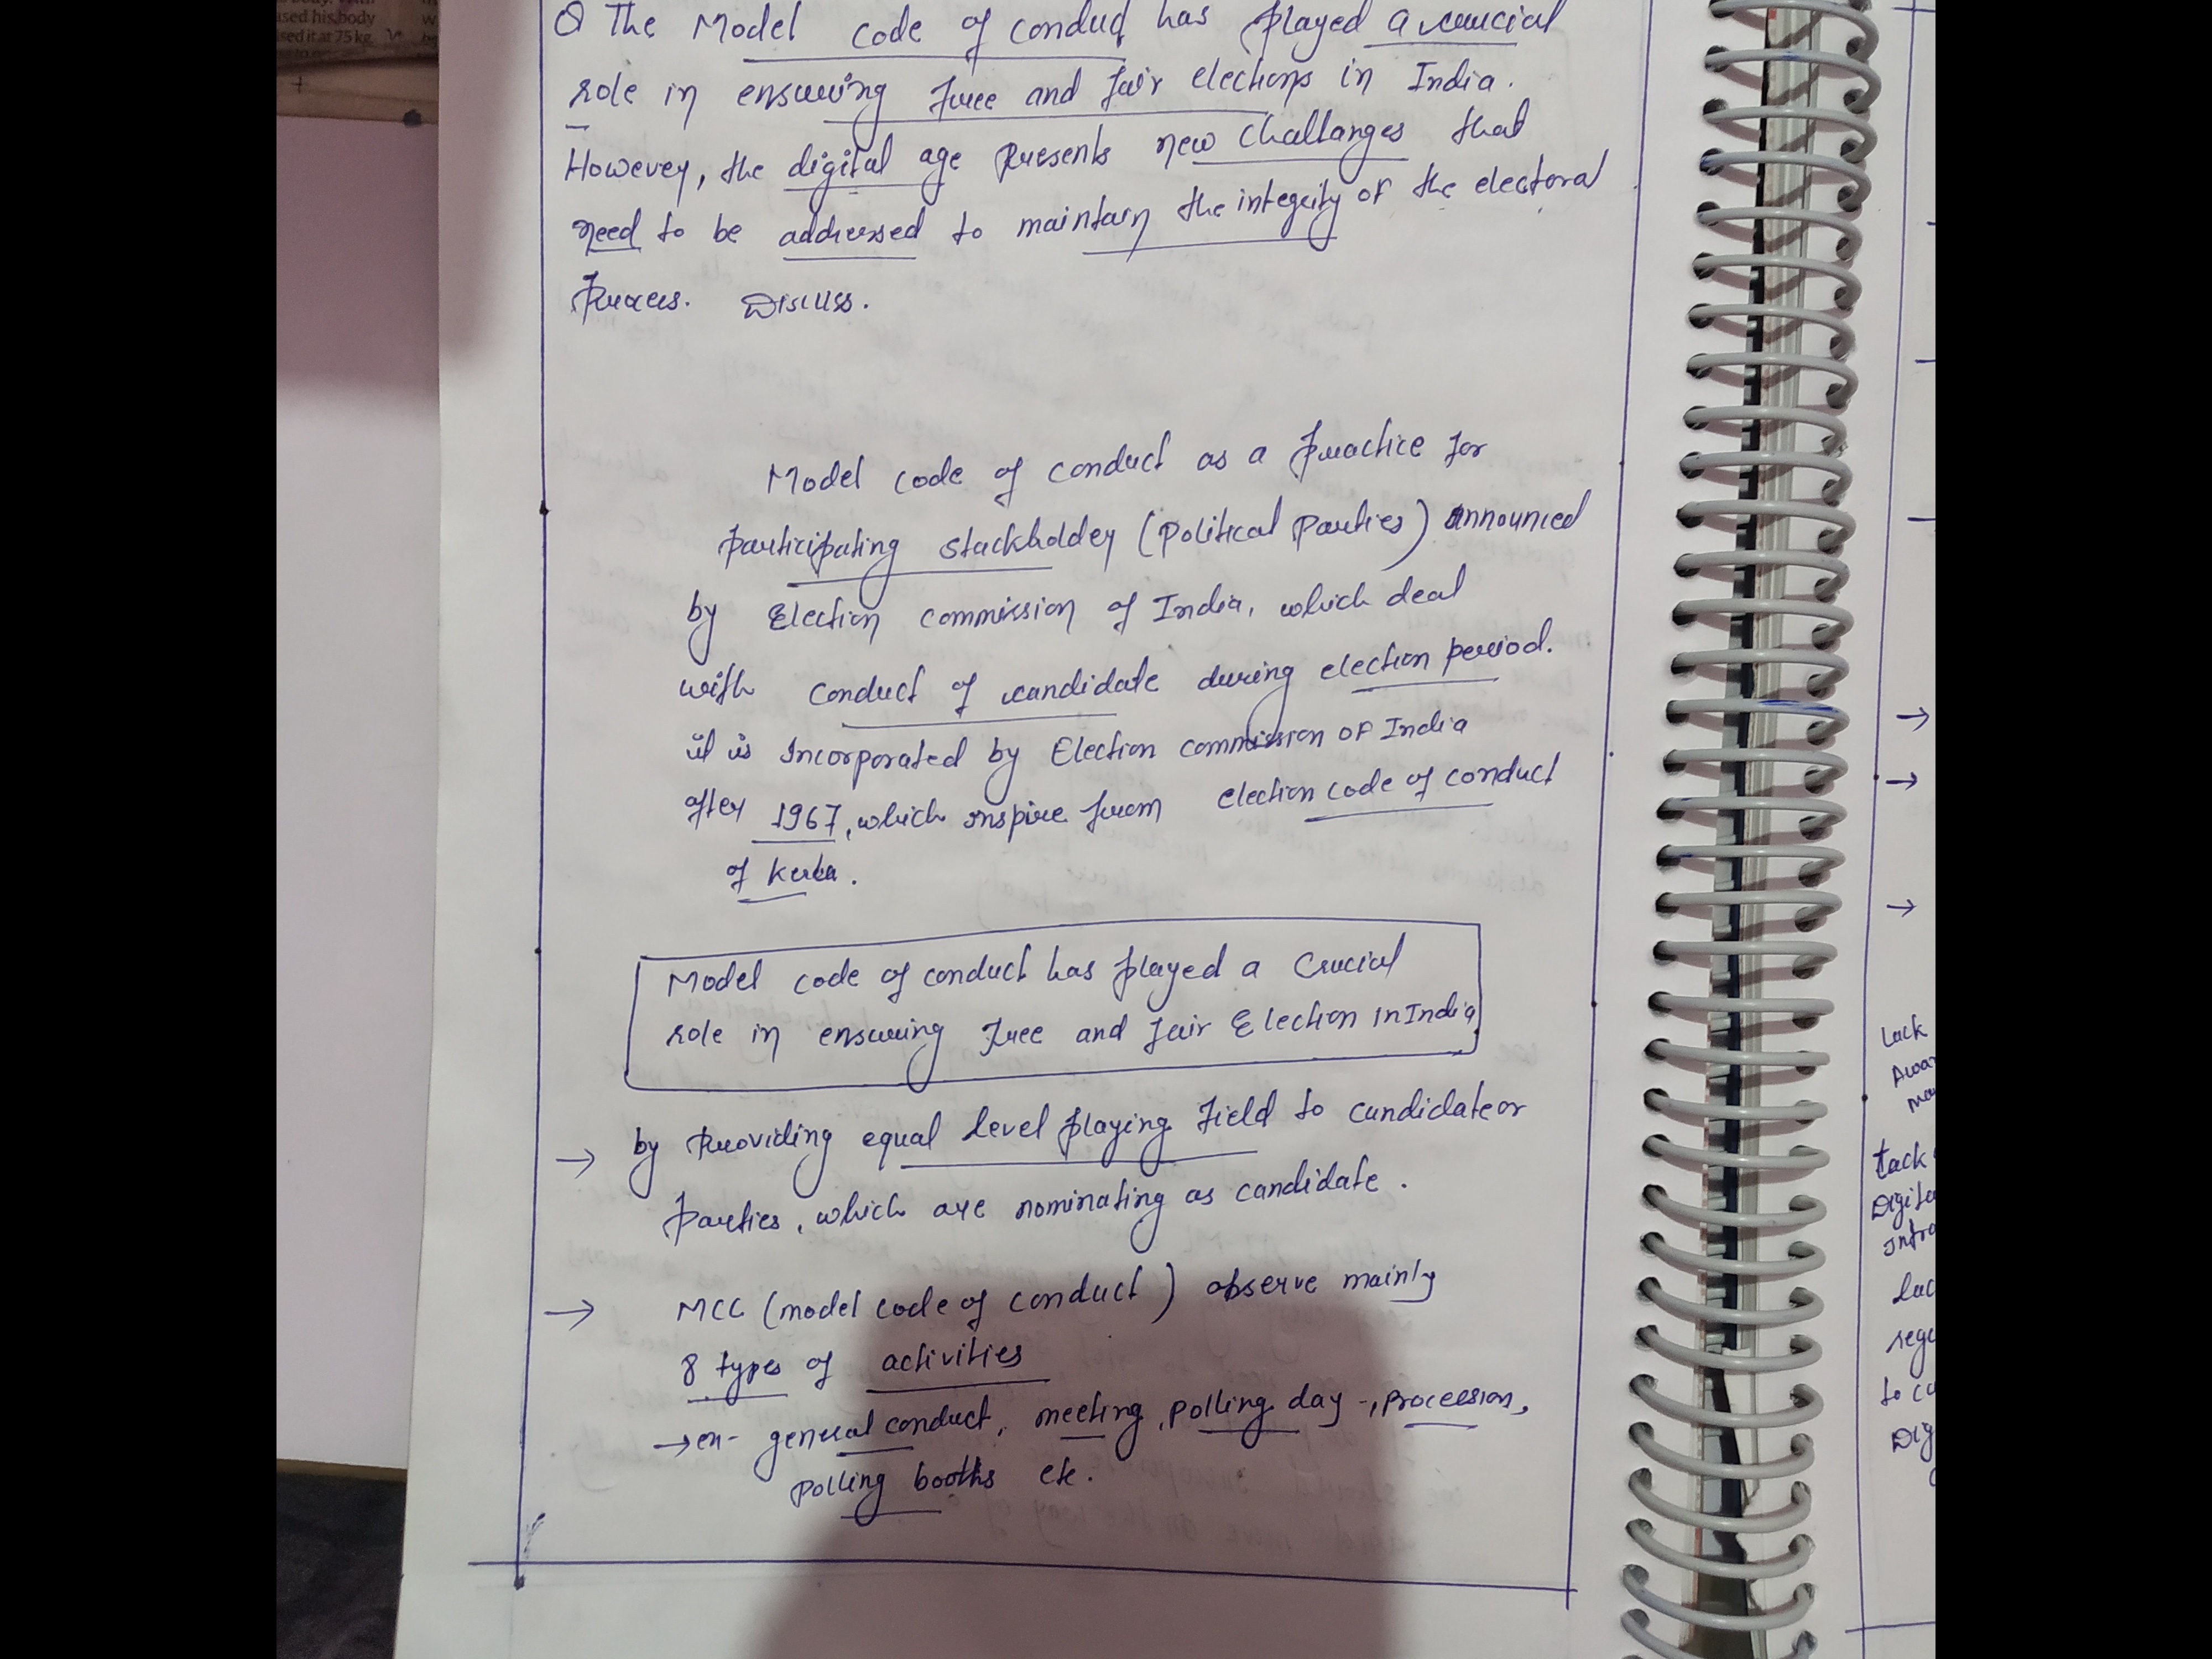 ased his body
sed it at 75 kg.
Q The Model code of conduct has played a crucial
role in ensuring free and fair elections in India.
However, the digital age presents new challanges that
need to be addressed to maintain the integrity of the electoral
Process. Discuss.
Model code of conduct as a practice for
participating stackholder (Political Parties) announced
by Election commission of India, which deal
with conduct of candidate during election period.
it is Incorporated by Election commission of India
after 1967, which inspire from election code of conduct
of Kerla.
Model code of conduct has played a Crucial
role in ensuring free and fair Election in India
→ by providing equal level playing field to candidate or
parties, which are nominating as candidate.
→ MCC (model code of conduct) observe mainly
8 types of activities
→ ex- general conduct, meeting, polling day, procession,
polling booths etc.
→
→
→
Lack
Awar
Lack
Digita
Infra
lac
regu
to cu
Dig